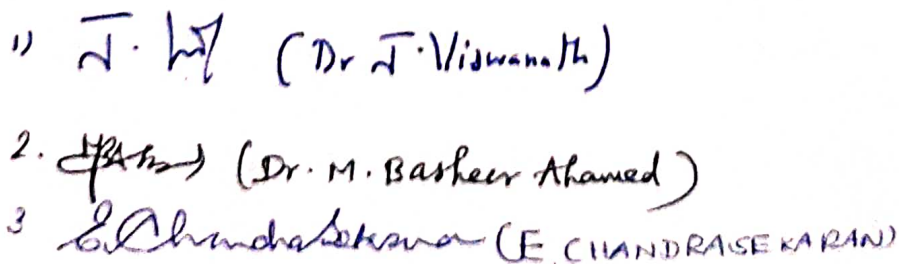 1) J. (Dr J. Viswanath)
2. (Dr. M. Basheer Ahamed)
3 E. Chandrasekaran (E CHANDRASEKARAN)